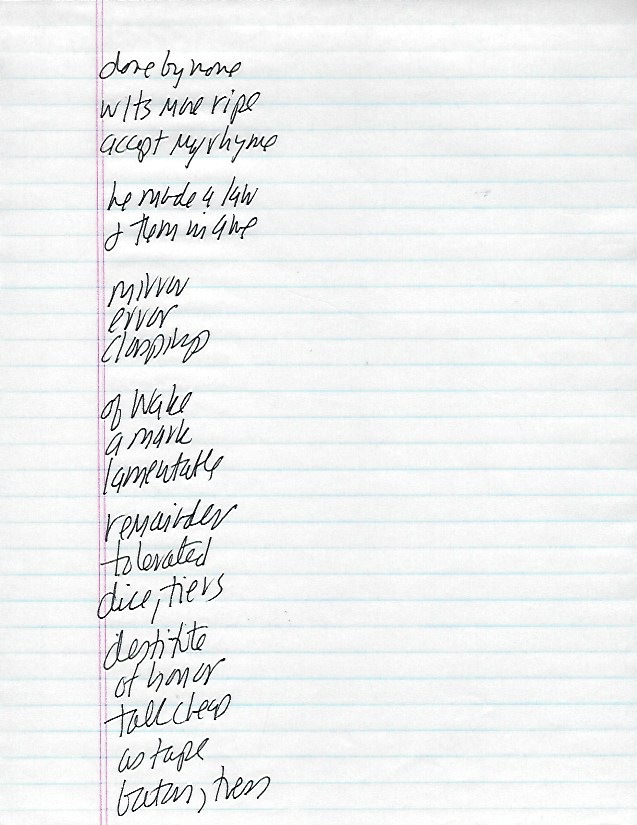 done by none
wits more ripe
accept my rhyme
he made a law
& them in awe
mirror
error
clasp
of Wake
a mark
lamentable
remainder
tolerated
dice, tiers
destitute
of honor
talk cheap
as tape